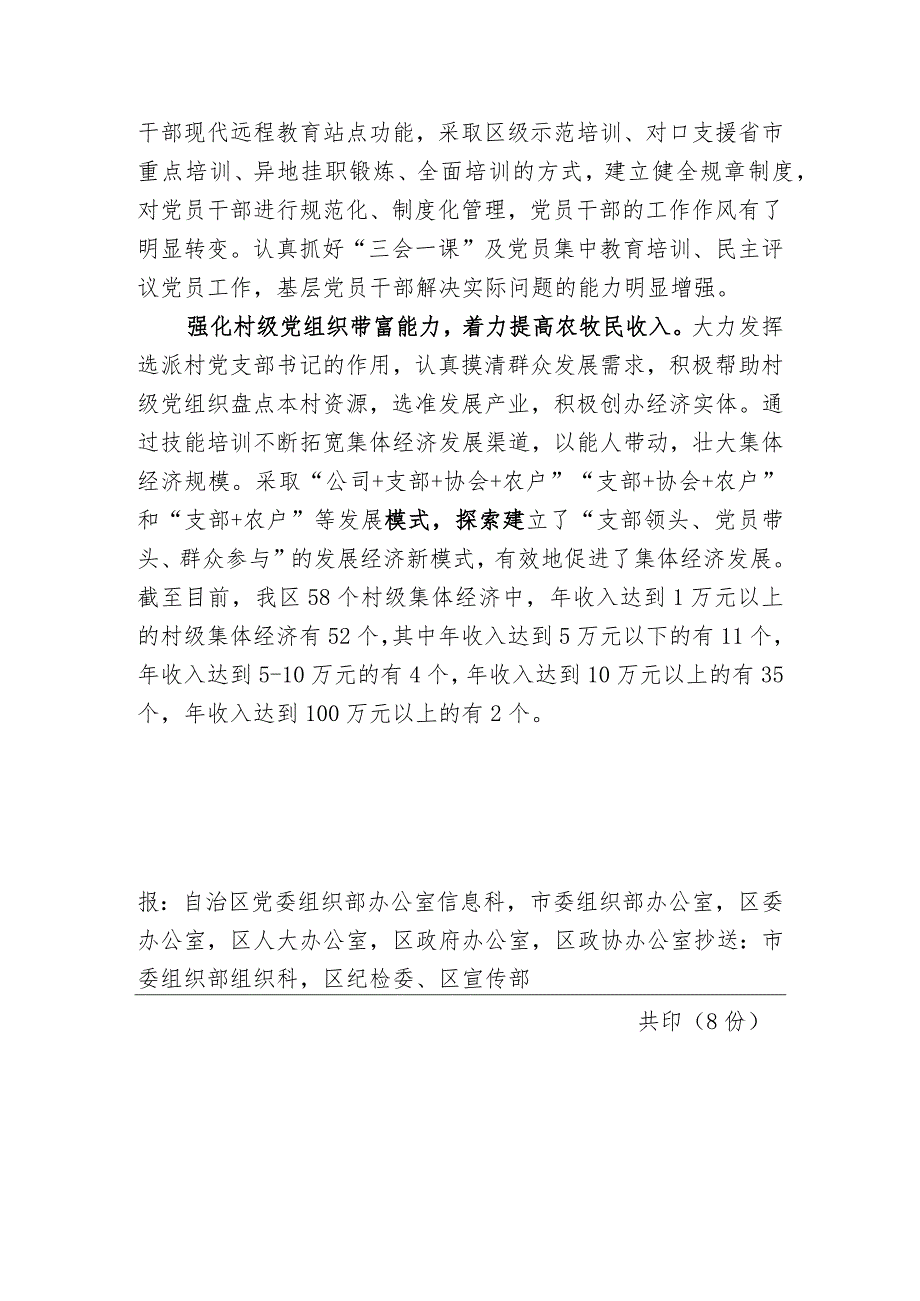 干部现代远程教育站点功能，采取区级示范培训、对口支援省市
重点培训、异地挂职锻炼、全面培训的方式，建立健全规章制度，
对党员干部进行规范化、制度化管理，党员干部的工作作风有了
明显转变。认真抓好“三会一课”及党员集中教育培训、民主评
议党员工作，基层党员干部解决实际问题的能力明显增强。
强化村级党组织带富能力，着力提高农牧民收入。大力发挥
选派村党支部书记的作用，认真摸清群众发展需求，积极帮助村
级党组织盘点本村资源，选准发展产业，积极创办经济实体。通
过技能培训不断拓宽集体经济发展渠道，以能人带动，壮大集体
经济规模。采取“公司+支部+协会+农户”“支部+协会+农户”
和“支部+农户”等发展模式，探索建立了“支部领头、党员带
头、群众参与”的发展经济新模式，有效地促进了集体经济发展。
截至目前，我区 58 个村级集体经济中，年收入达到 1 万元以上
的村级集体经济有 52 个,其中年收入达到 5 万元以下的有 11 个，
年收入达到 5-10 万元的有 4 个，年收入达到 10 万元以上的有 35
个，年收入达到 100 万元以上的有 2 个。
报：自治区党委组织部办公室信息科，市委组织部办公室，区委
办公室，区人大办公室，区政府办公室，区政协办公室抄送：市
委组织部组织科，区纪检委、区宣传部
共印（8 份）